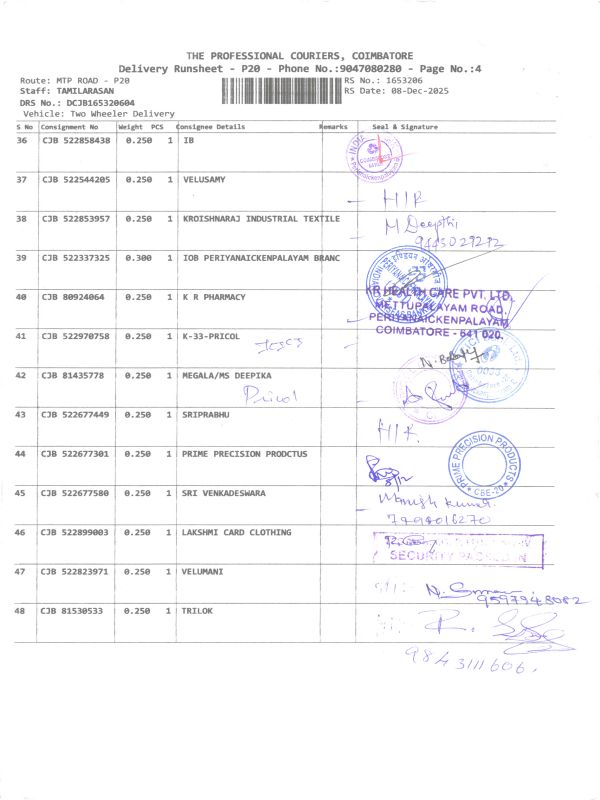 THE PROFESSIONAL COURIERS, COIMBATORE
Delivery Runsheet - P20 - Phone No.:9047080280 - Page No.:4
Route: MTP ROAD - P20 RS No.: 1653206
Staff: TAMILARASAN RS Date: 08-Dec-2025
DRS No.: DCJB165320604
Vehicle: Two Wheeler Delivery
S No Consignment No Weight PCS Consignee Details Remarks Seal & Signature
36 CJB 522858438 0.250 1 IB
37 CJB 522544205 0.250 1 VELUSAMY
H/R
38 CJB 522853957 0.250 1 KROISHNARAJ INDUSTRIAL TEXTILE
M Deepthi
9443029272
39 CJB 522337325 0.300 1 IOB PERIYANAICKENPALAYAM BRANC
40 CJB 80924064 0.250 1 K R PHARMACY
KR HEALTH CARE PVT. LTD.
METTUPALAYAM ROAD,
PERIYANAICKENPALAYAM
COIMBATORE - 641 020.
41 CJB 522970758 0.250 1 K-33-PRICOL
42 CJB 81435778 0.250 1 MEGALA/MS DEEPIKA
Pricol
43 CJB 522677449 0.250 1 SRIPRABHU
H/R
44 CJB 522677301 0.250 1 PRIME PRECISION PRODCTUS
PRIME PRECISION PRODUCTS
CBE-20
45 CJB 522677580 0.250 1 SRI VENKADESWARA
46 CJB 522899003 0.250 1 LAKSHMI CARD CLOTHING
SECURITY
47 CJB 522823971 0.250 1 VELUMANI
9597943082
48 CJB 81530533 0.250 1 TRILOK
9843111606.